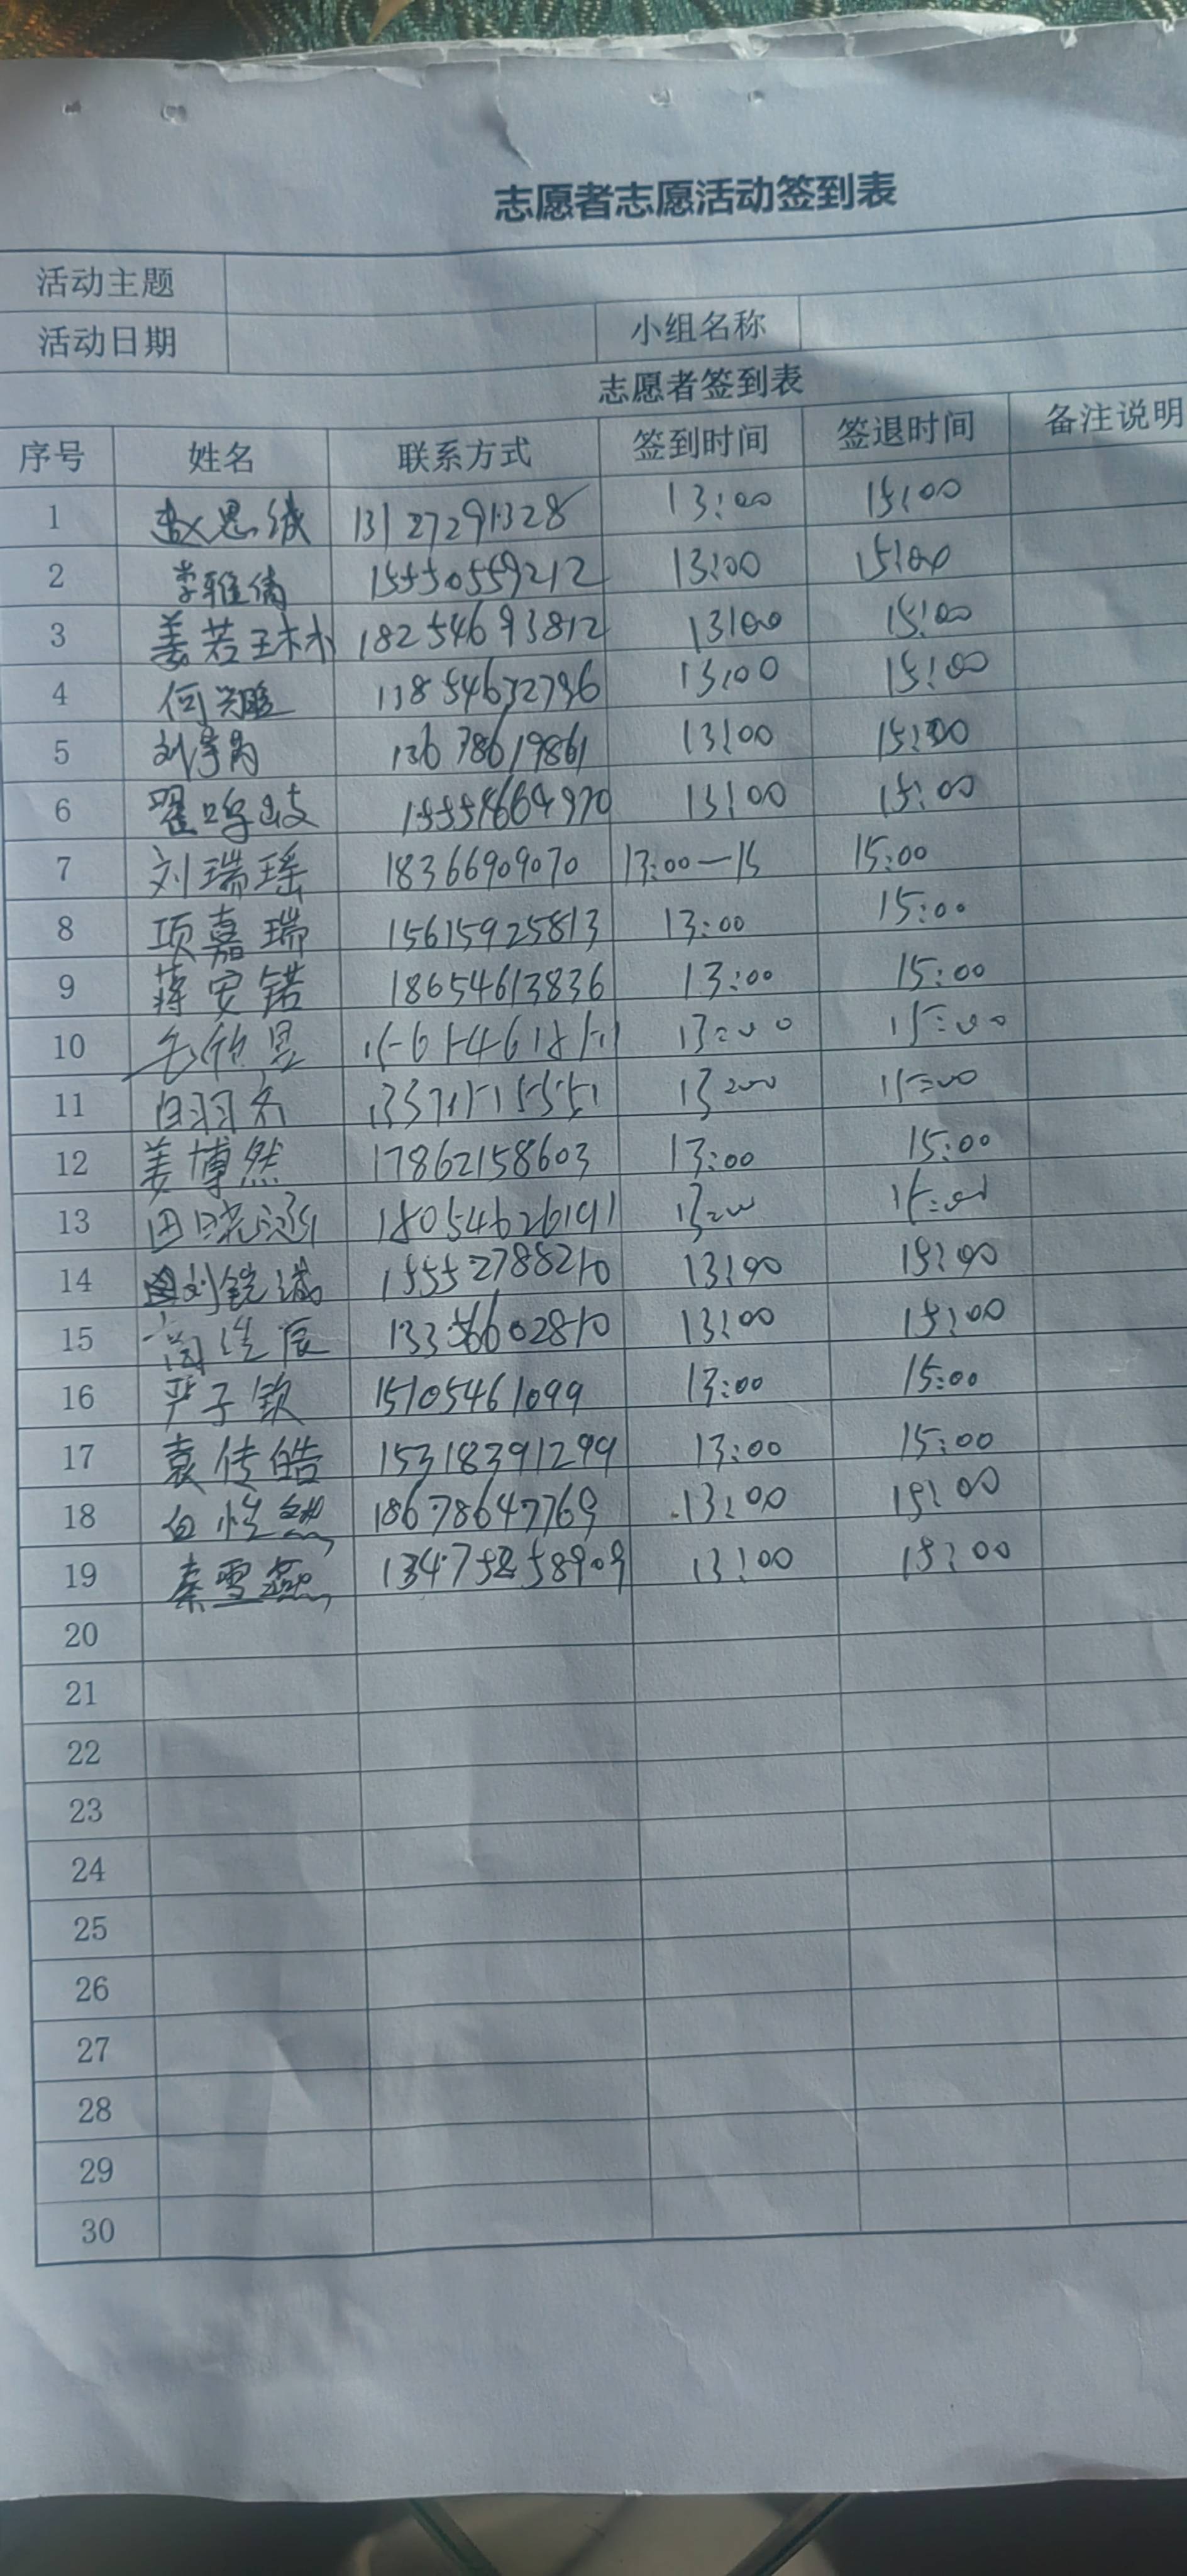 志愿者志愿活动签到表
活动主题
活动日期 小组名称
志愿者签到表
序号 姓名 联系方式 签到时间 签退时间 备注说明
1 赵思诚 13127291328 13:00 15:00
2 李雅倩 15550559212 13:00 15:00
3 姜若琳 18254693812 13:00 15:00
4 何兴 13:00 15:00
5 13678619861 13:00 15:00
6 翟鸣岐 15551664970 13:00 15:00
7 刘瑞瑶 18366909070 13:00—15 15:00
8 项嘉瑞 15615925813 13:00 15:00
9 蒋安锘 18654613836 13:00 15:00
10 13:00 15:00
11 白羽 13:00 15:00
12 姜博然 17862158603 13:00 15:00
13 田晓涵 18054626191 13:00 15:00
14 刘 15552788210 13:00 15:00
15 13:00 15:00
16 严子钦 15105461099 13:00 15:00
17 袁传皓 15318391299 13:00 15:00
18 白悦然 18678647769 13:00 15:00
19 秦雪燕 13:00 15:00
20
21
22
23
24
25
26
27
28
29
30